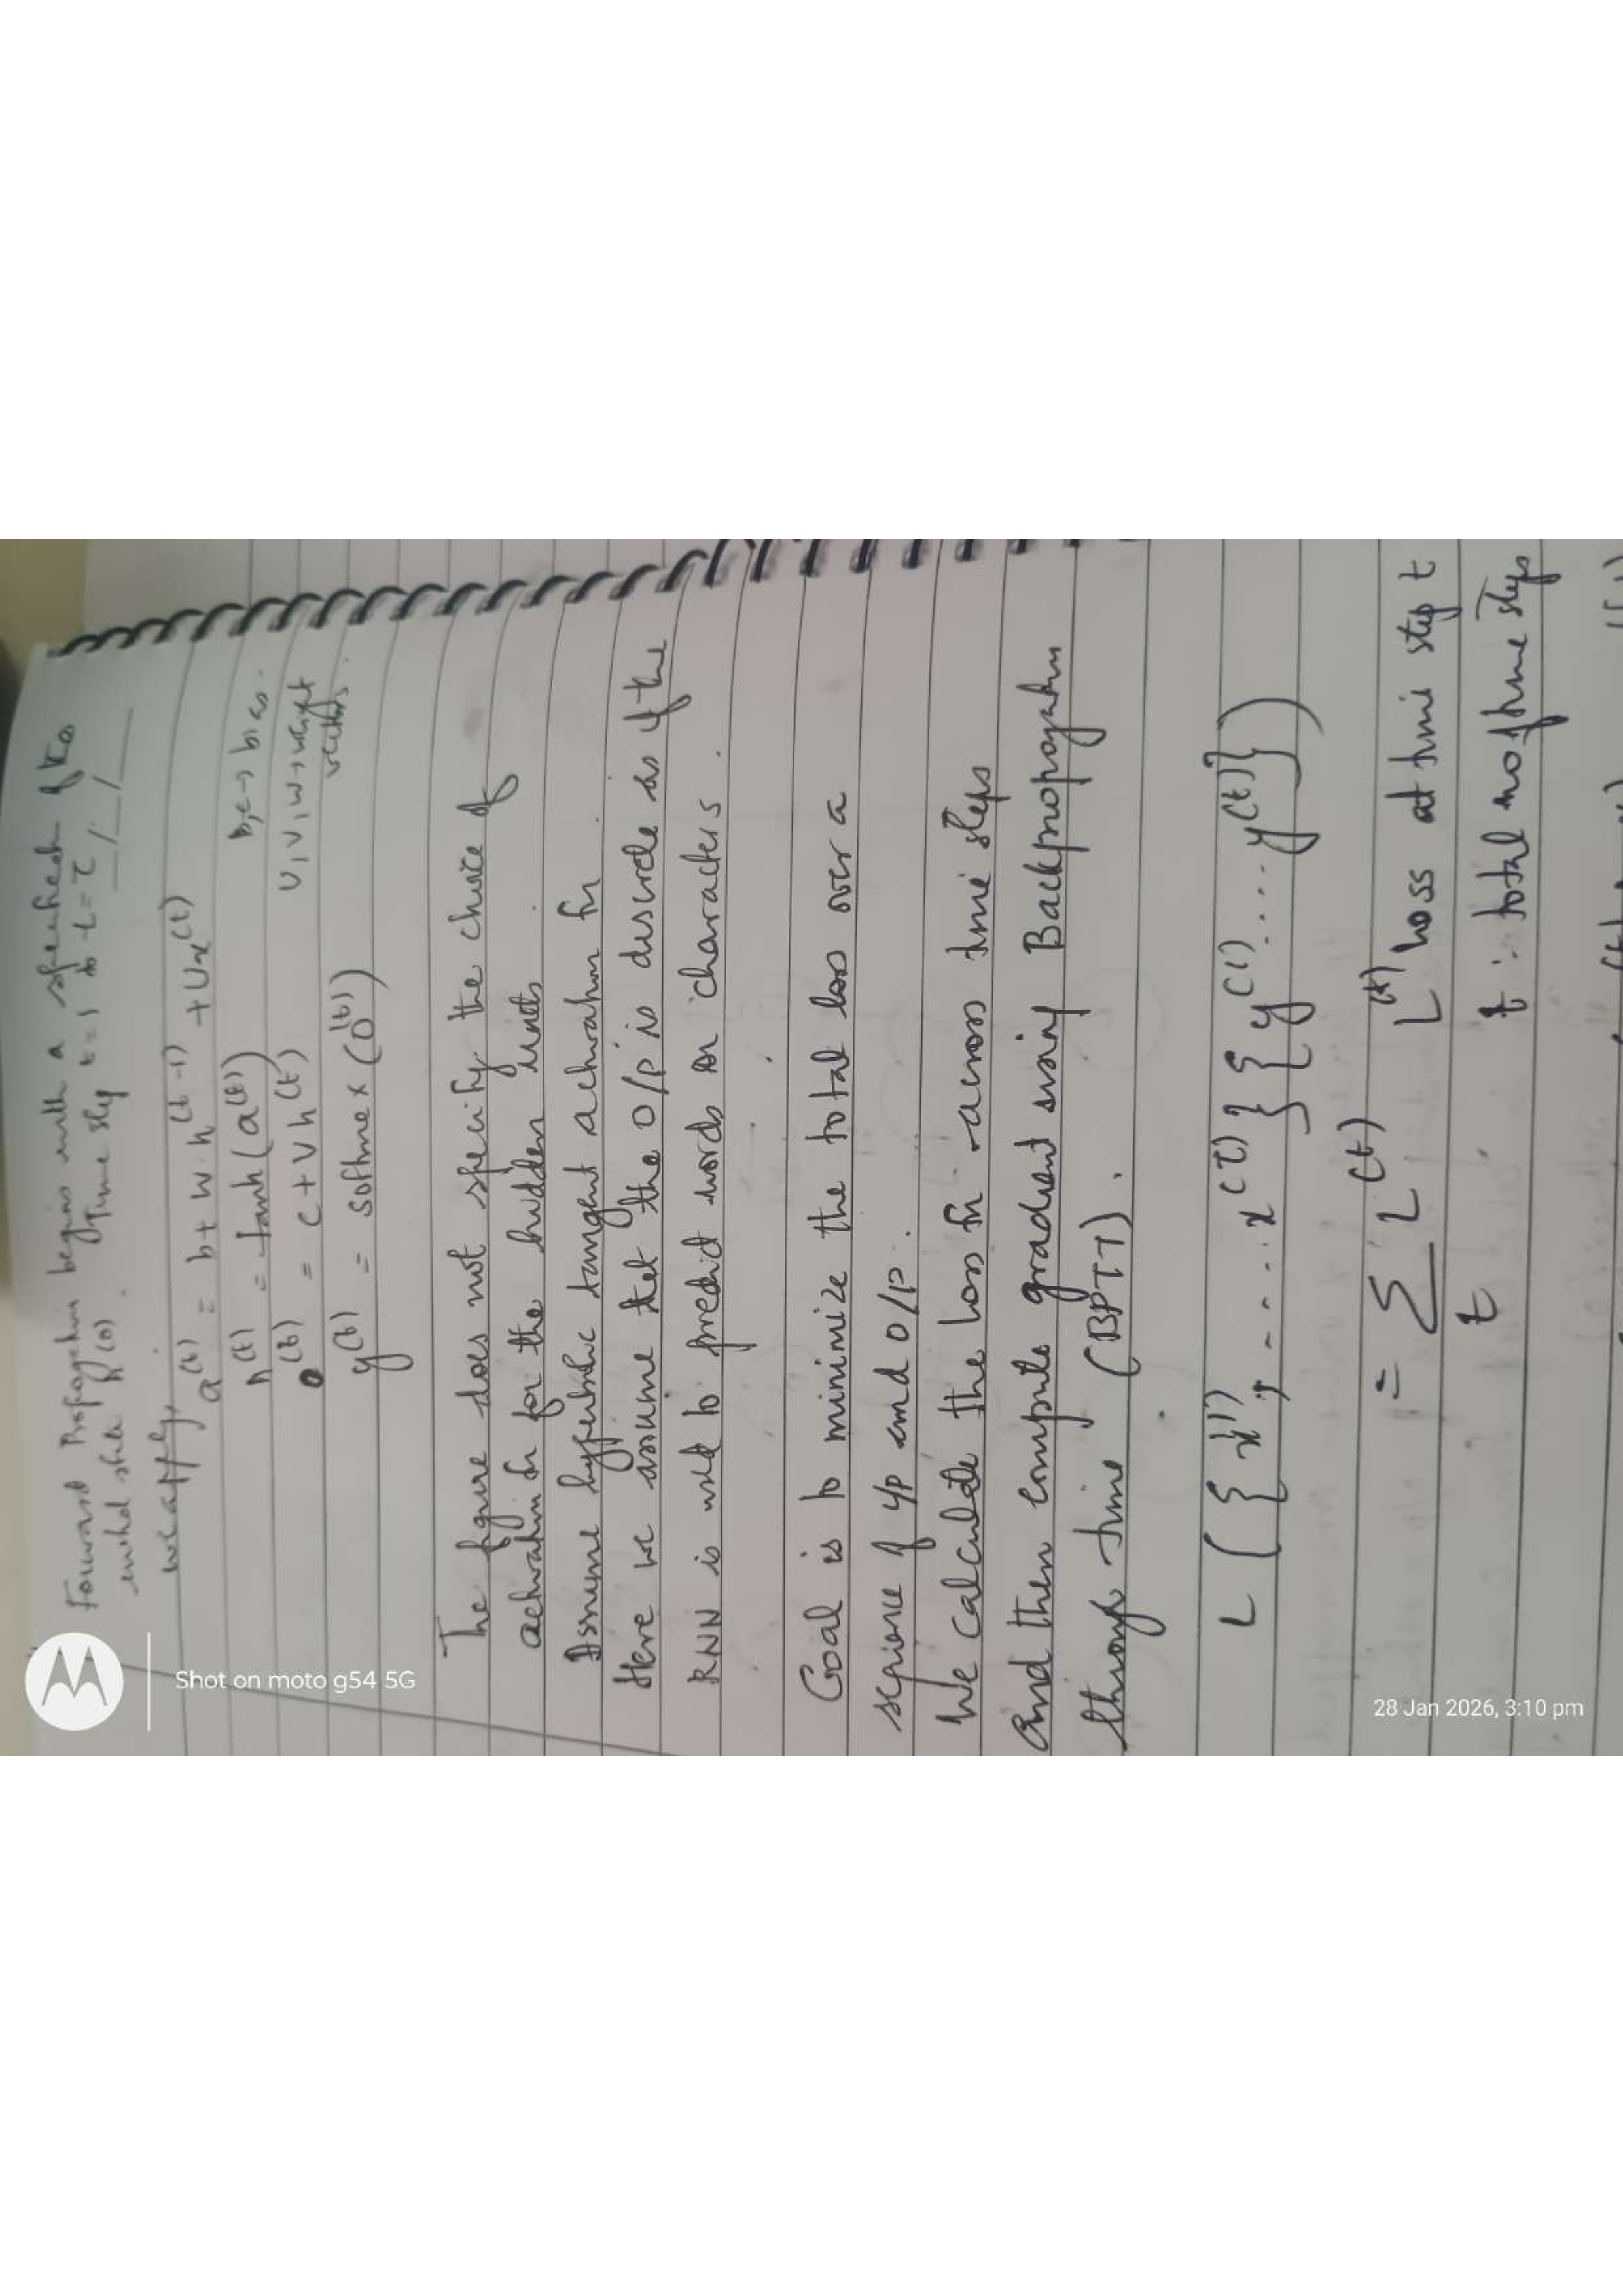 Forward Propogation begins with a specification of the
initial state h^(0). Time step t=1 to t=τ
we apply,
a^(t) = b + W·h^(t-1) + Ux^(t)
h^(t) = tanh(a^(t)) b,c → bias.
o^(t) = c + Vh^(t) U, V, W → weight
y^(t) = softmax(o^(t)) vectors.
The figure does not specify the choice of
activation fn for the hidden units.
Assume hyperbolic tangent activation fn.
Here we assume that the O/P is discrete as if the
RNN is used to predict words or characters.
Goal is to minimize the total loss over a
sequence of i/p and o/p.
We calculate the loss fn across time steps
and then compute gradient using Backpropogation
through time (BPTT).
L({x^(1), ..... x^(τ)} {y^(1) ..... y^(t)})
= Σ L^(t) L^(t) loss at time step t
t t : total no of time steps
Shot on moto g54 5G
28 Jan 2026, 3:10 pm